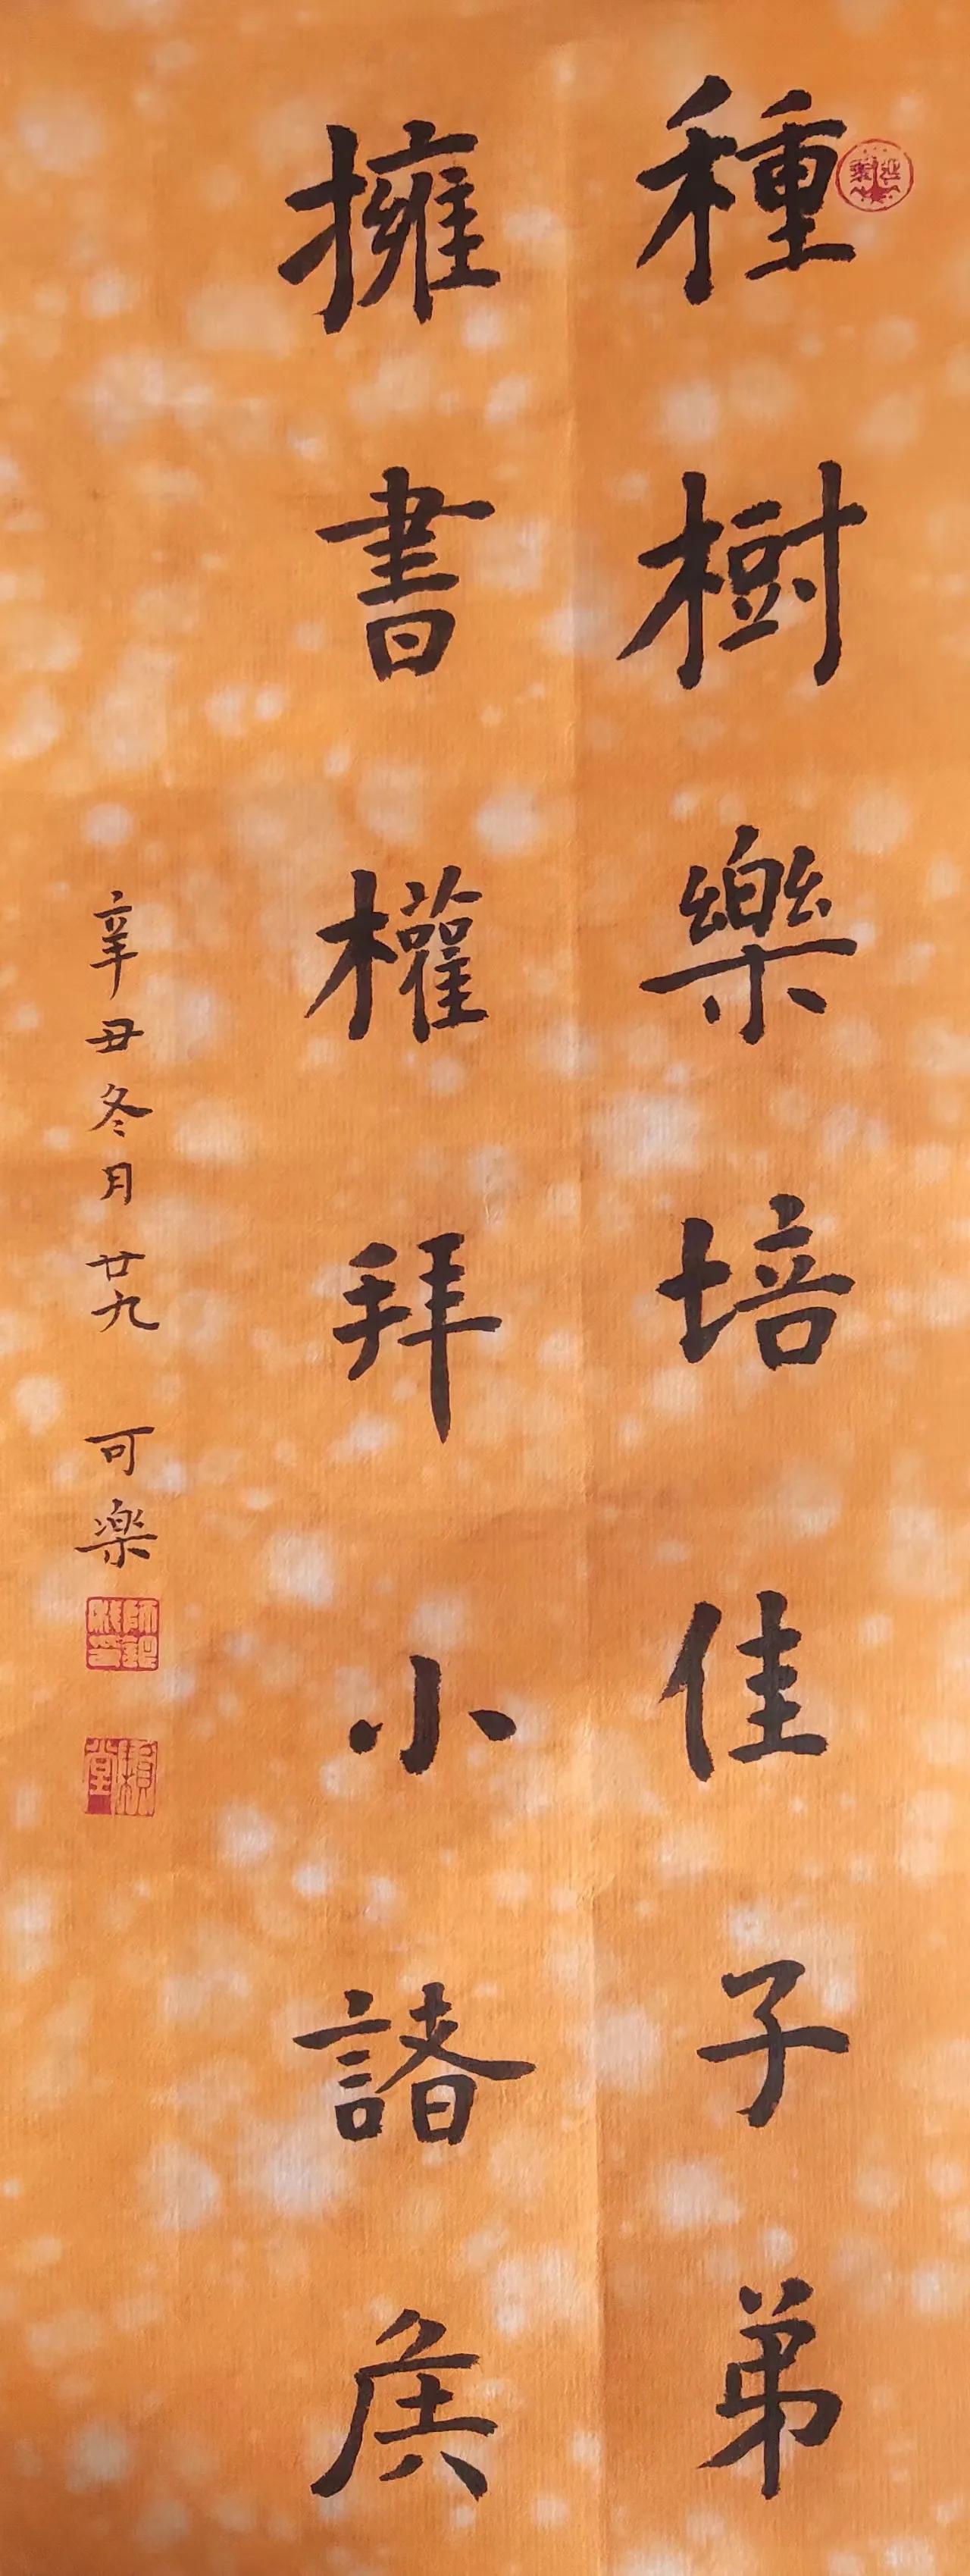 種樹樂培佳子弟
擁書權拜小諸侯
辛丑冬月廿九 可樂